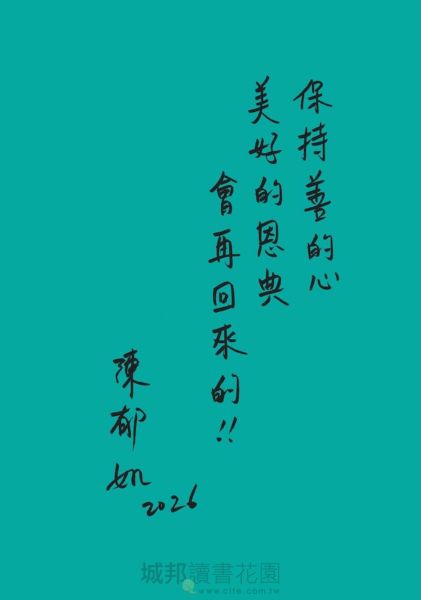 保持善的心
美好的恩典
會再回來的!!
陳郁如
2026
城邦讀書花園
www.cite.com.tw